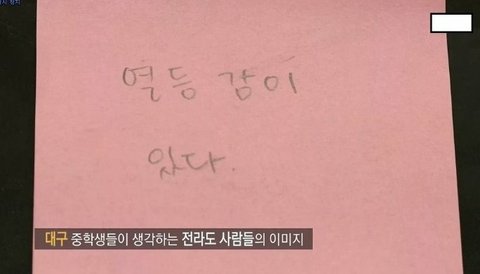 열등 감이
있다.
대구 중학생들이 생각하는 전라도 사람들의 이미지